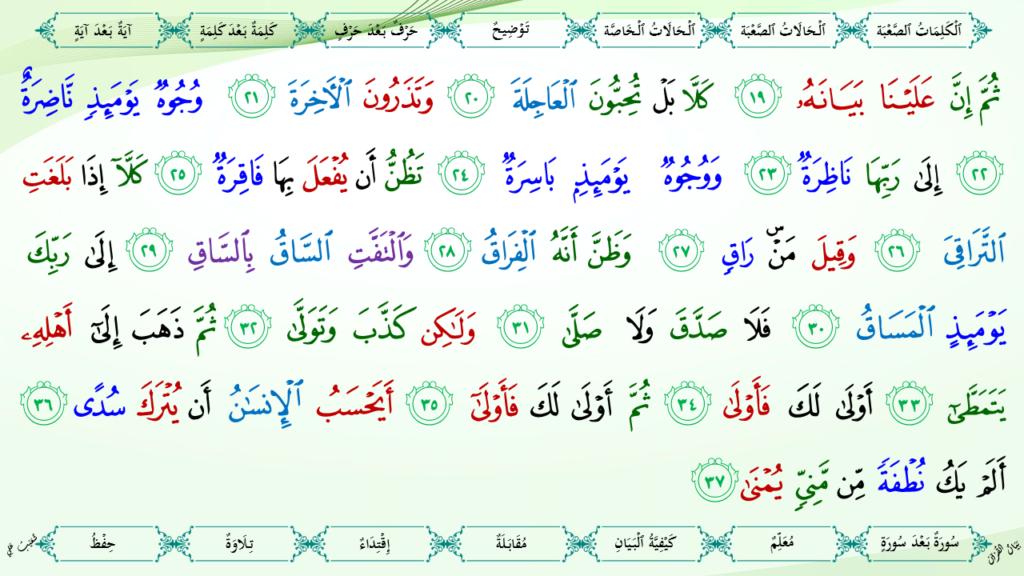 اَلْكَلِمَاتُ الصَّعْبَة اَلْحَالَاتُ الصَّعْبَة اَلْحَالَاتُ الْخَاصَّة تَوْضِيحٌ حَرْفٌ بَعْدَ حَرْفٍ كَلِمَةٌ بَعْدَ كَلِمَةٍ آيَةٌ بَعْدَ آيَةٍ
ثُمَّ إِنَّ عَلَيْنَا بَيَانَهُۥ ١٩ كَلَّا بَلْ تُحِبُّونَ ٱلْعَاجِلَةَ ٢٠ وَتَذَرُونَ ٱلْأَخِرَةَ ٢١ وُجُوهٌ يَوْمَئِذٍ نَّاضِرَةٌ
٢٢ إِلَىٰ رَبِّهَا نَاظِرَةٌ ٢٣ وَوُجُوهٌ يَوْمَئِذٍۭ بَاسِرَةٌ ٢٤ تَظُنُّ أَن يُفْعَلَ بِهَا فَاقِرَةٌ ٢٥ كَلَّآ إِذَا بَلَغَتِ
ٱلتَّرَاقِىَ ٢٦ وَقِيلَ مَنْۜ رَاقٍ ٢٧ وَظَنَّ أَنَّهُ ٱلْفِرَاقُ ٢٨ وَٱلْتَفَّتِ ٱلسَّاقُ بِٱلسَّاقِ ٢٩ إِلَىٰ رَبِّكَ
يَوْمَئِذٍ ٱلْمَسَاقُ ٣٠ فَلَا صَدَّقَ وَلَا صَلَّىٰ ٣١ وَلَـٰكِن كَذَّبَ وَتَوَلَّىٰ ٣٢ ثُمَّ ذَهَبَ إِلَىٰٓ أَهْلِهِۦ
يَتَمَطَّىٰٓ ٣٣ أَوْلَىٰ لَكَ فَأَوْلَىٰ ٣٤ ثُمَّ أَوْلَىٰ لَكَ فَأَوْلَىٰٓ ٣٥ أَيَحْسَبُ ٱلْإِنسَـٰنُ أَن يُتْرَكَ سُدًى ٣٦
أَلَمْ يَكُ نُطْفَةً مِّن مَّنِىٍّ يُمْنَىٰ ٣٧
سُورَةٌ بَعْدَ سُورَةٍ مُعَلِّمٌ كَيْفِيَّةُ الْبَيَانِ مُقَابَلَةٌ إِقْتِدَاءٌ تِلَاوَةٌ حِفْظٌ